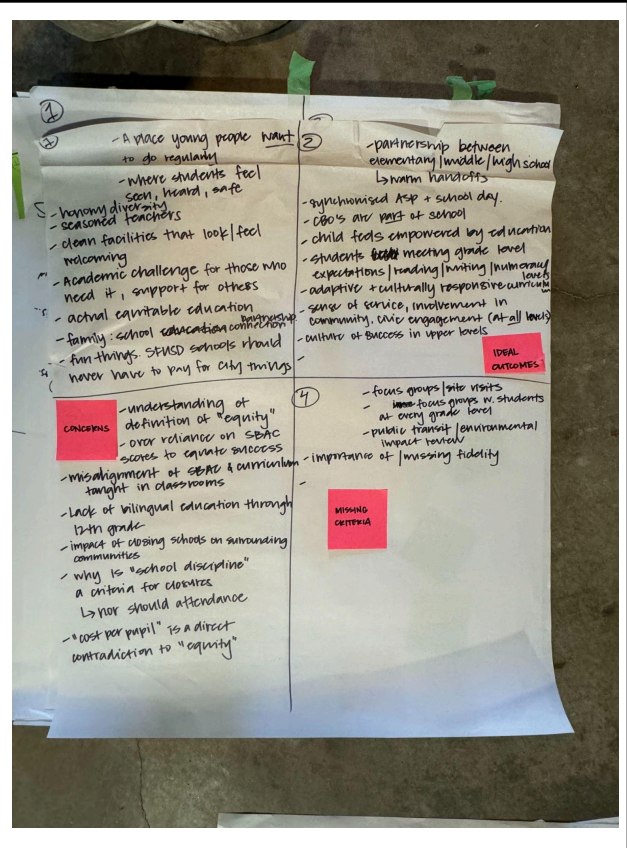 1
2
- A place young people want
to do regularly
- where students feel
seen, heard, safe
- honomy diversity
- seasoned teachers
- clean facilities that look/feel
welcoming
- Academic challenge for those who
need it, support for others
- actual equitable education
partnership
- family: school connection
- fun things. SFUSD schools should
never have to pay for city things
2
- partnership between
elementary/middle/high school
↳ warm handoffs
- synchronised ASP + school day.
- CBO's are part of school
- child feels empowered by education
- students meeting grade level
expectations/reading/writing/numeracy
levels
- adaptive + culturally responsive curriculum
- sense of service, involvement in
community, civic engagement (at all levels)
- culture of success in upper levels
-
IDEAL
OUTCOMES
CONCERNS
- understanding of
definition of "equity"
- over reliance on SBAC
scores to equate success
- misalignment of SBAC & curriculum
taught in classrooms
- Lack of bilingual education through
12th grade
- impact of closing schools on surrounding
communities
- why is "school discipline"
a criteria for closures
↳ nor should attendance
- "cost per pupil" is a direct
contradiction to "equity"
4
- focus groups/site visits
- focus groups w. students
at every grade level
- public transit/environmental
impact review
- importance of/missing fidelity
-
MISSING
CRITERIA